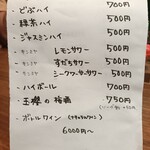 ・どぶハイ 700円
・緑茶ハイ 500円
・ジャスミンハイ 500円
・レモンサワー 500円
・すだちサワー 500円
・シークワーサーサワー 500円
・ハイボール 700円
・玉櫻の梅酒 750円
・ボトルワイン
6000円〜